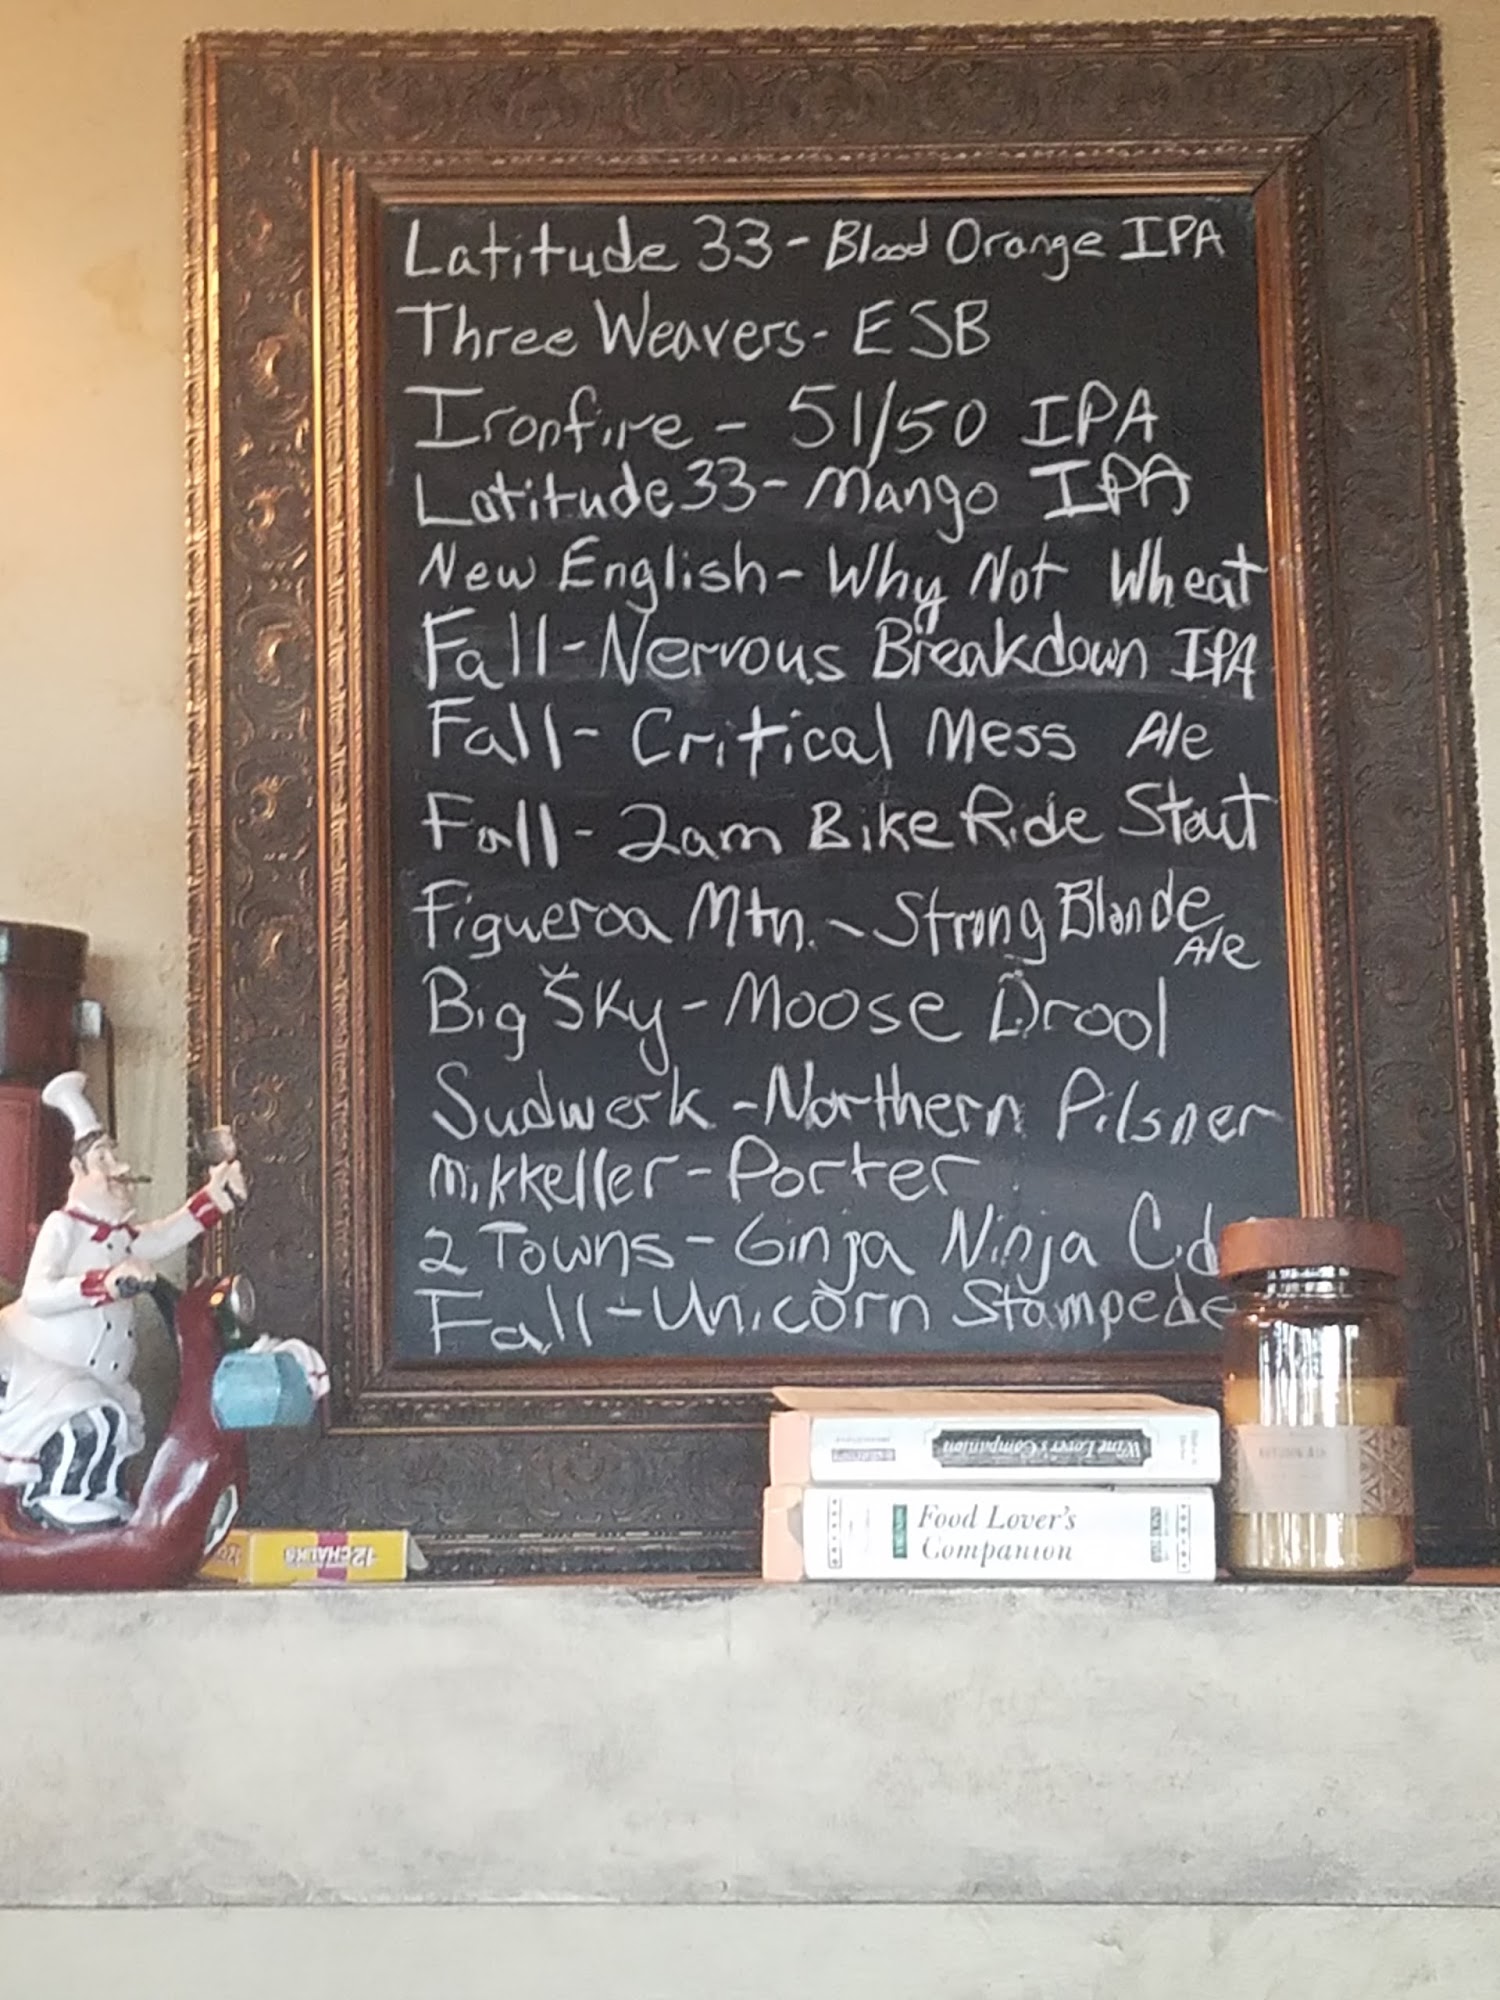 Latitude 33 - Blood Orange IPA
Three Weavers - ESB
Ironfire - 51/50 IPA
Latitude 33 - Mango IPA
New English - Why Not Wheat
Fall - Nervous Breakdown IPA
Fall - Critical Mess Ale
Fall - 2am Bike Ride Stout
Figueroa Mtn. - Strong Blonde
Ale
Big Sky - Moose Drool
Sudwerk - Northern Pilsner
Mikkeller - Porter
2 Towns - Ginja Ninja Cid
Fall - Unicorn Stampede
Wine Lover's Companion
Food Lover's
Companion
12 CHALKS